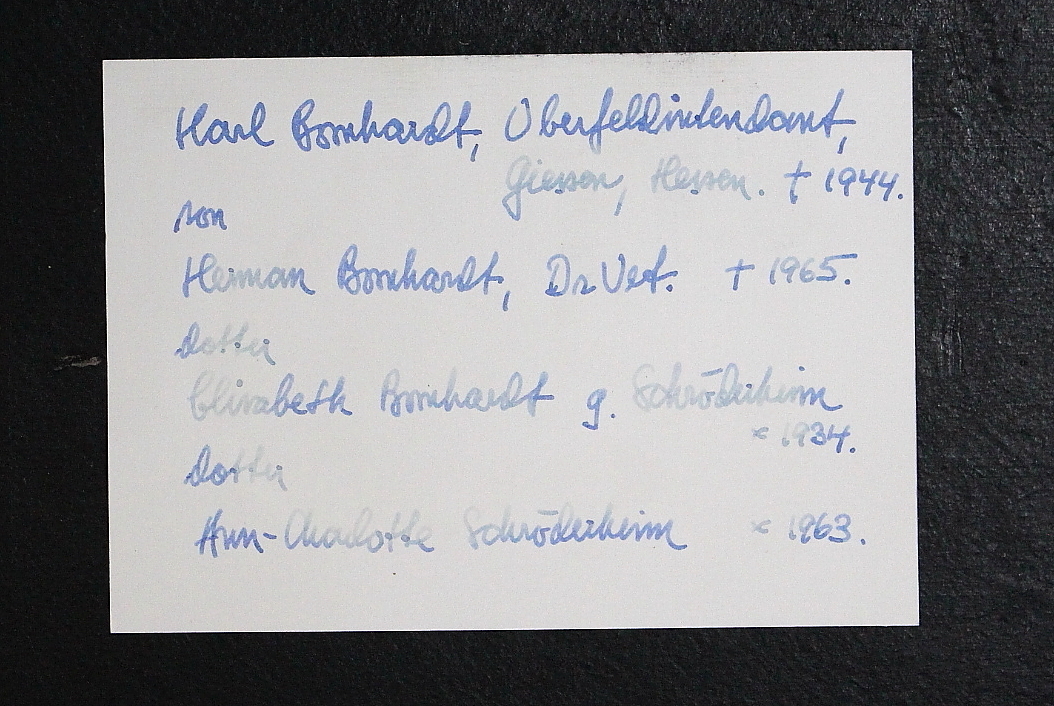 Karl Bornhardt, Oberfeldintendant,
Giessen, Hessen. † 1944.
son
Herman Bornhardt, Dr Vet. † 1965.
dotter
Elisabeth Bornhardt g. Schröderheim
× 1934.
dotter
Ann-Charlotte Schröderheim × 1963.